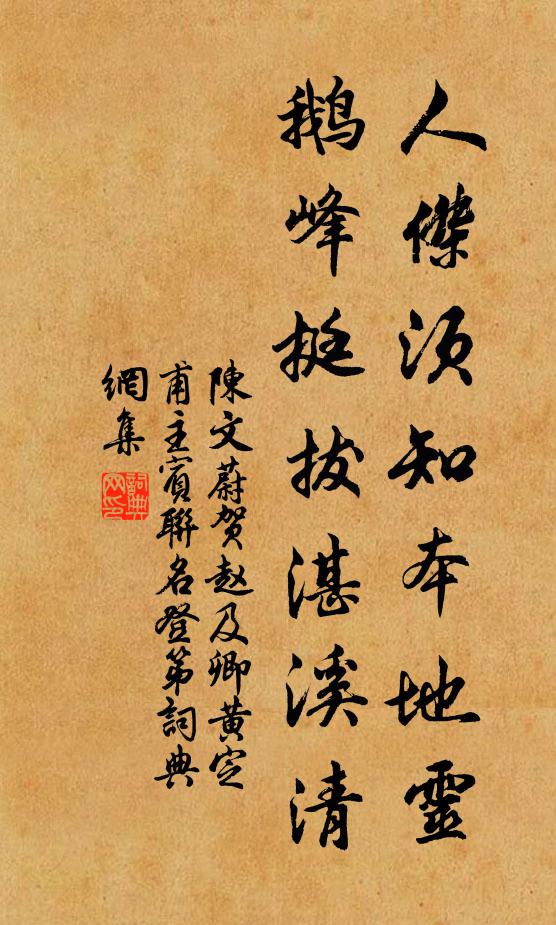 人傑須知本地靈
鵝峰挺拔湛溪清
陳文蔚贺赵及卿黄定
甫主賓聯名登第詞典
網集
詞典
网印